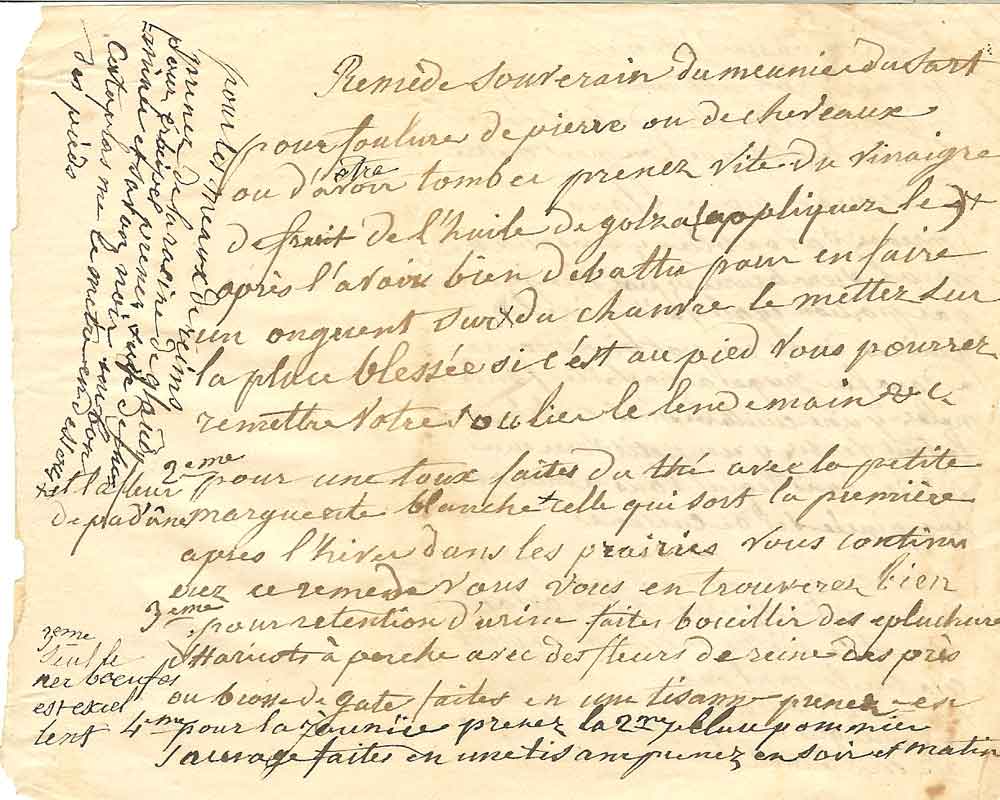 Remède souverain du meunie du Sart
pour foulure de pierre ou de cheveaux
ou d'avoir etre tomber prenez vite du vinaigre
de fruit de l'huile de golza (appliquez le) +
après l'avoir bien debattu pour en faire
un onguent sur du chanvre le mettez sur
la place blessée si c'est au pied vous pourrez
remettre votre soulier le lendemain &c
2eme pour une toux faites du thé avec la petite
marguerite blanche + celle qui sort la première
apres l'hiver dans les prairies vous continu
erez ce remede vous vous en trouverez bien
3eme pour retention d'urine faites bouillir des epluchure
d'Haricots à perche avec des fleurs de reine des près
ou de gate faites en une tisane prenez en
4eme pour la jaunice prenez la 2me pellau pommier
sauvage faites en une tisam prenez en soir et matin
pour les meaux de reins
prenez de la rasine de
pour prenez
et savon noir un bon
Cataplas me le metre en dessous
des pieds
+ et la fleur
de pad'âne
3eme
Seul le
ner boeufes
est exel
lent